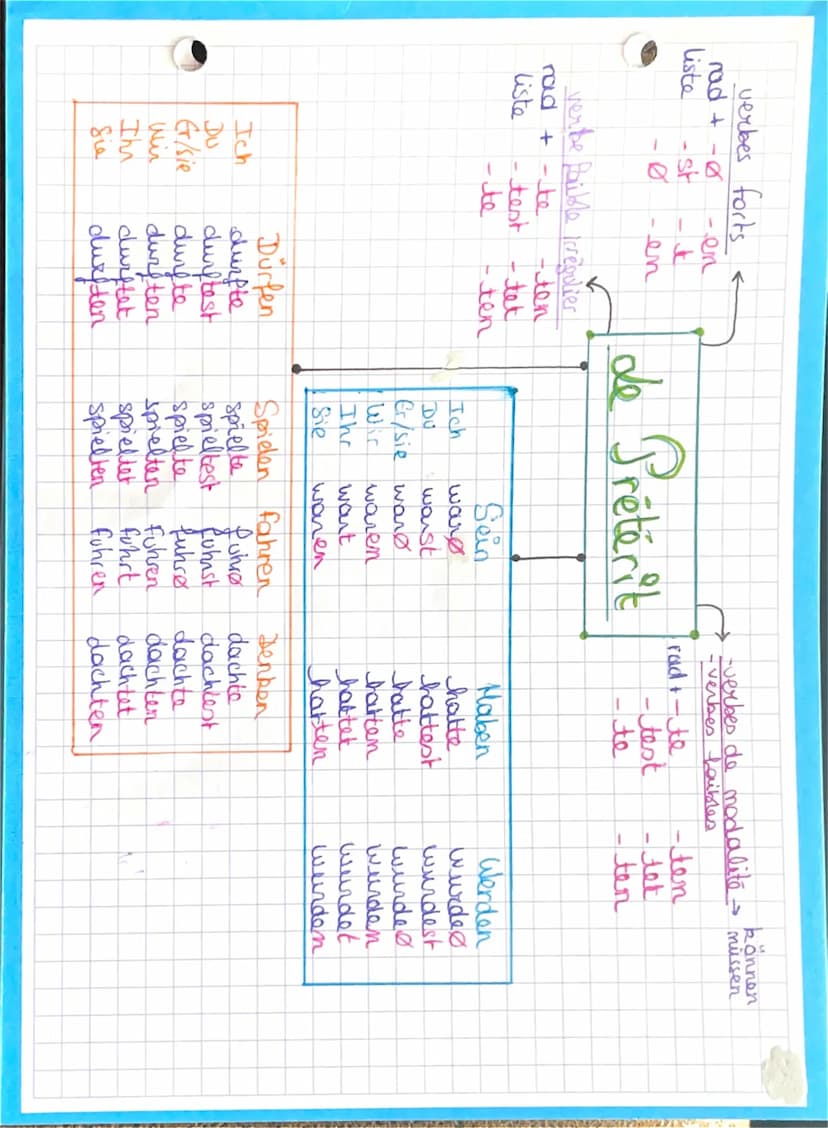 Le Prétérit
verbes forts
rad + -ø -en
liste -st -t
-ø -en
verbe faible irrégulier
rad + -te -ten
liste -test -tet
-te -ten
-verbes de modalité → können
müssen
-verbes faibles
rad + -te -ten
-test -tet
-te -ten
Sein Haben Werden
Ich warø hatte wurdeø
Du warst hattest wurdest
Er/sie warø hatte wurdeø
Wir waren hatten wurden
Ihr wart hattet wurdet
Sie waren hatten wurden
Dürfen Spielen fahren Denken
Ich durfte spielte fuhrø dachte
Du durftest spieltest fuhrst dachtest
Er/sie durfte spielte fuhrø dachte
Wir durften spielten fuhren dachten
Ihr durftet spieltet fuhrt dachtet
Sie durften spielten fuhren dachten